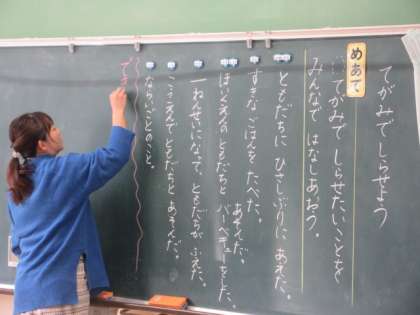 てがみでしらせよう
めあて
てがみで しらせたいことを
みんなで はなしあおう。
ともだちに ひさしぶりに あえた。
すきな ごはんを たべた。
あそんだ。
ほいくえんの ともだちと バーベキューをした。
一ねんせいになって、ともだちが ふえた。
こうえんで ともだちと あそんだ。
ならいごとのこと。
でき